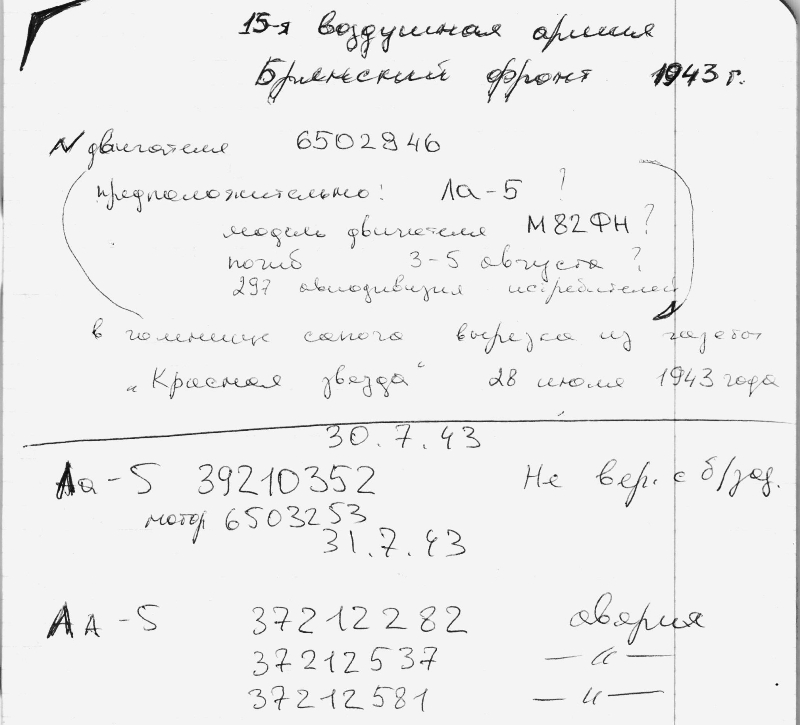 15-я воздушная армия
Брянский фронт 1943 г.
N двигателя 6502946
предположительно: Ла-5 ?
модель двигателя М82ФН ?
погиб 3-5 августа ?
297 авиадивизия истребителей
в голенище сапога вырезка из газеты
"Красная звезда" 28 июля 1943 года
30.7.43
Ла-5 39210352 Не вер. с б/зад.
мотор 6503253
31.7.43
ЛА-5 37212282 авария
37212537 — " —
37212581 — " —